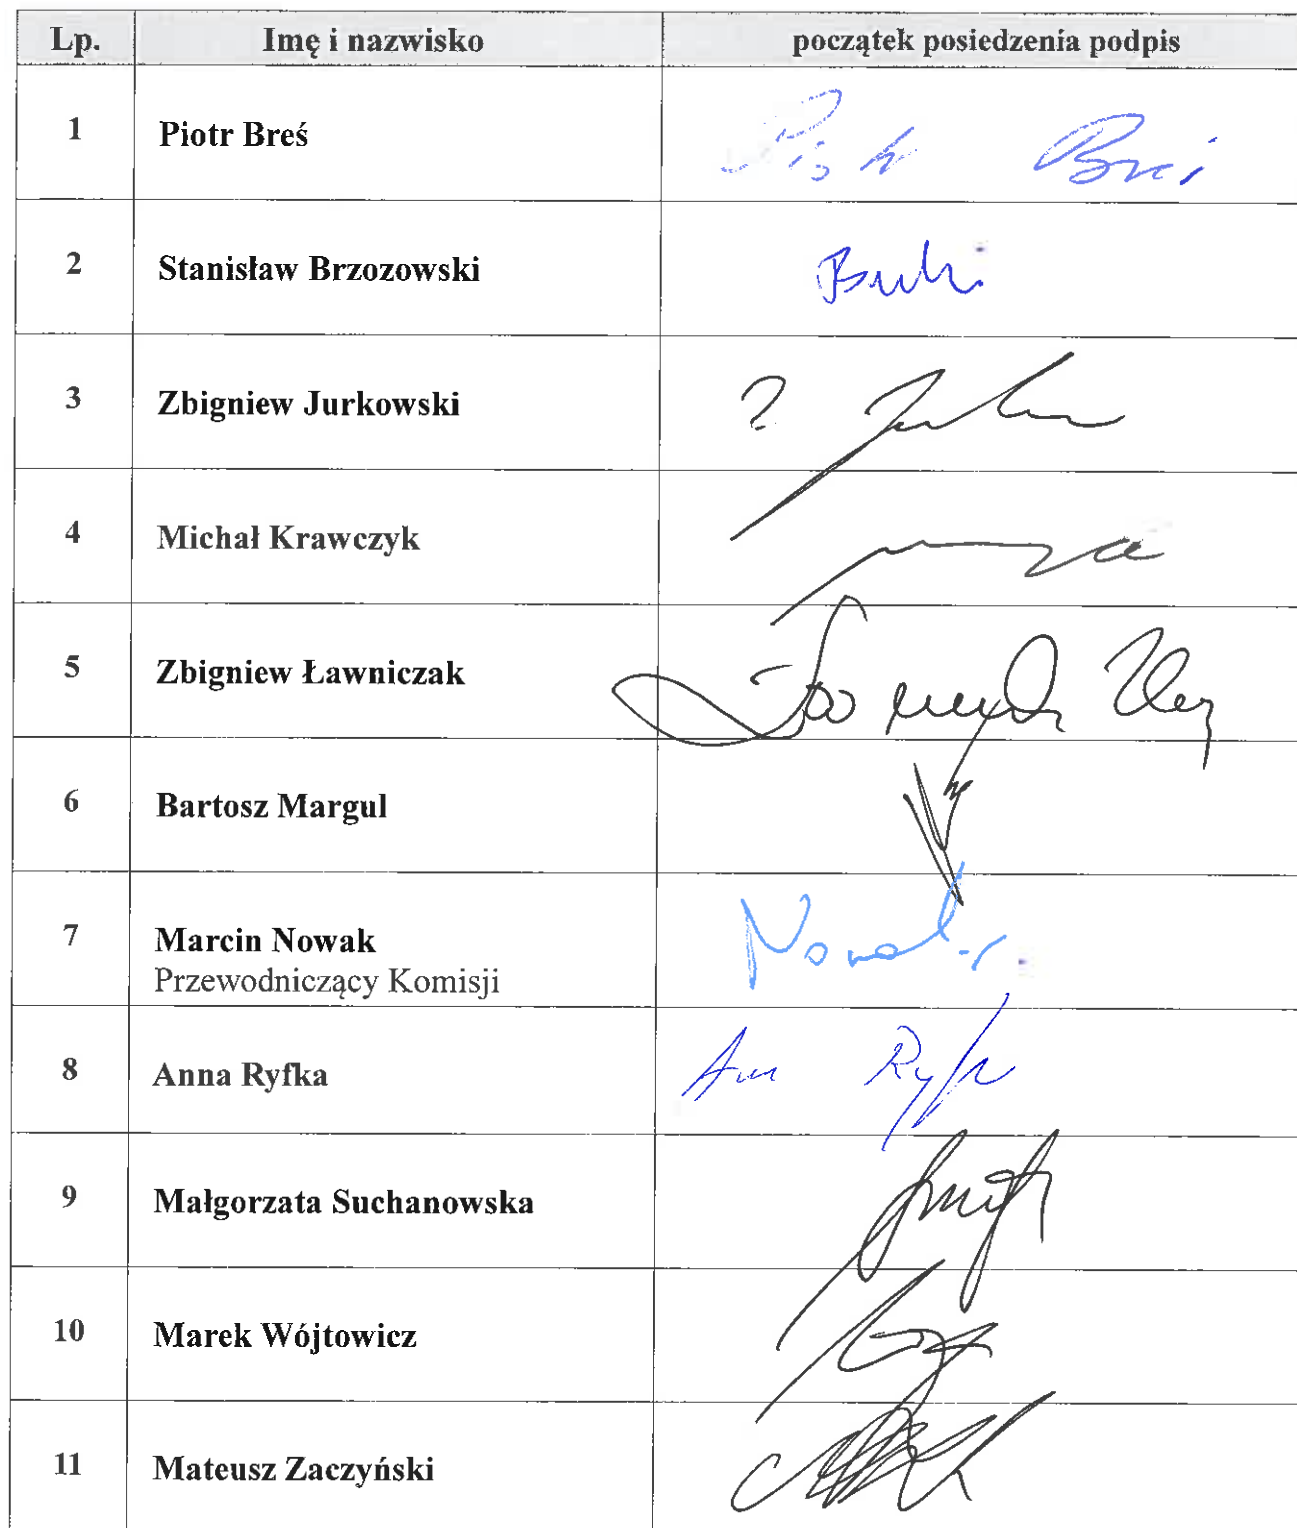 Lp. Imię i nazwisko początek posiedzenia podpis
1 Piotr Breś Piotr Breś
2 Stanisław Brzozowski
3 Zbigniew Jurkowski
4 Michał Krawczyk
5 Zbigniew Ławniczak
6 Bartosz Margul
7 Marcin Nowak Nowak
Przewodniczący Komisji
8 Anna Ryfka
9 Małgorzata Suchanowska
10 Marek Wójtowicz
11 Mateusz Zaczyński